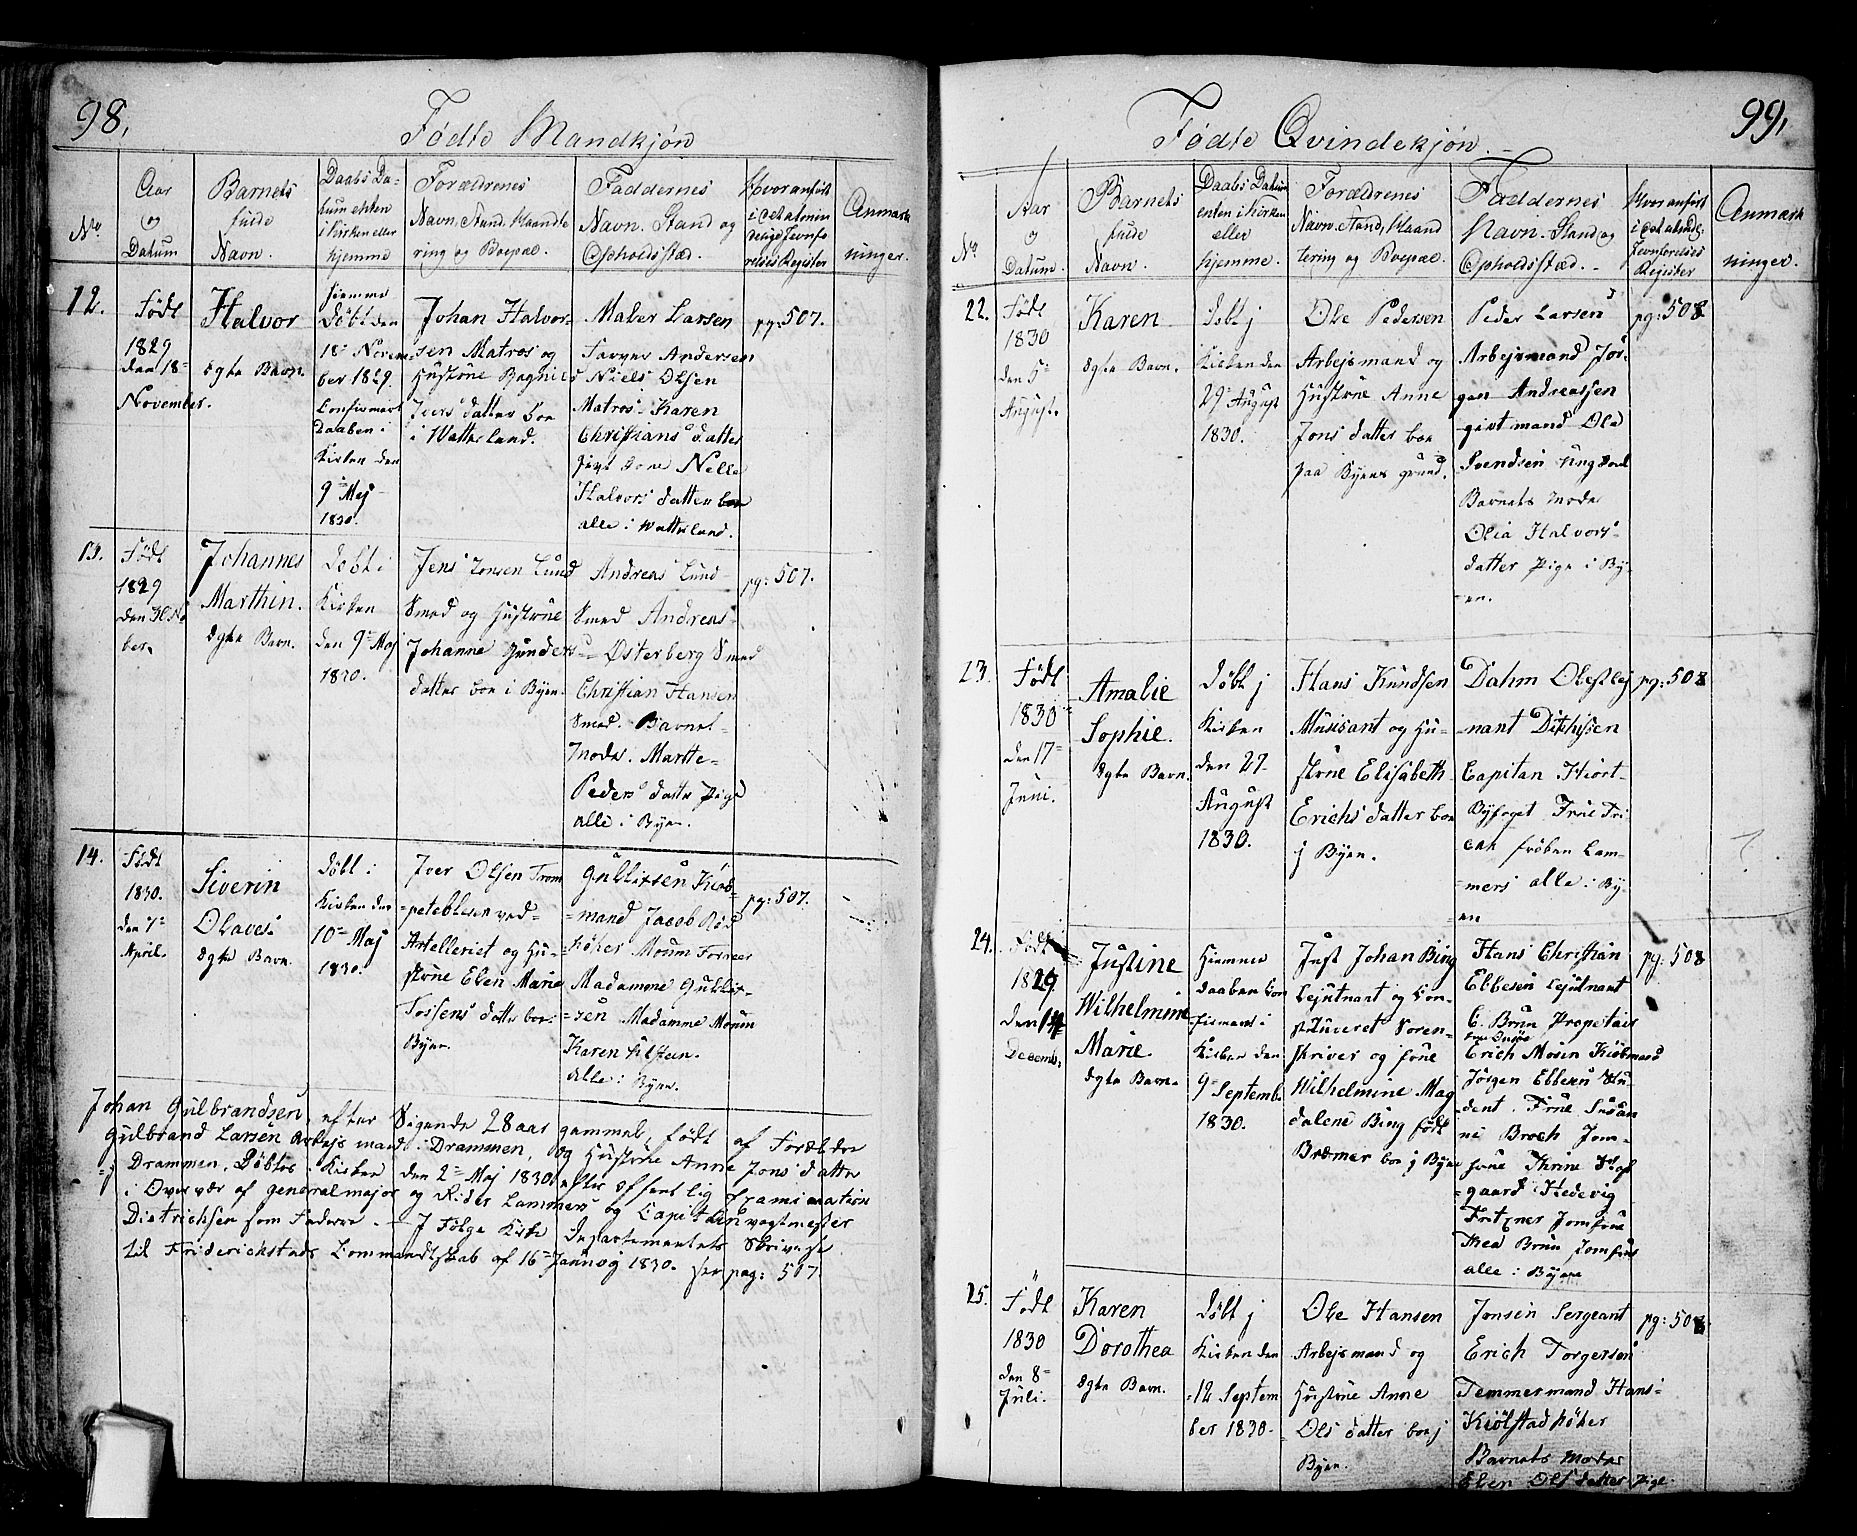 98,
Fødte Mandkjøn
No
Aar
og
Datum
Barnets
fulde
Navn.
Daabs Da-
tum enten
i Kirken eller
hjemme
Forældrenes
Navn, Stand, Haandte
ring og Boepæl.
Faddernes
Navn. Stand og
Opholdsstæd.
Hvor anført
i det almin
delige Jevnfø
relses Register
Anmærk
ninger.
12.
Født
1829
den 18-
November.
Halvor
ægte Barn.
hjemme
døbt den
18- Novem
ber 1829
Confirmert
Daaben i
Kirken den
9- Maj
1830.
Johan Halvor-
sen Matros og
Hustrue Ragnild
Ivers datter boe
i Watterland.
Maler Larsen
Farver Andersen
Niels Olsen
Matros- Karen
Christians datter
givt kone Nelle
Halvors datter boe
alle i Watterland.
pg: 507.
13.
Født
1829
den 30 No
ber.
Johannes
Marthin.
ægte Barn.
døbt i
Kirken
den 9- Maj
1830.
Jens Jonsen Lund
Smed og Hustrue
Johanne Gunders
datter boe i Byen
Andreas Lund-
Smed Andreas-
Østerberg Smed
Christian Hansen
Smed. Barnet-
Moder. Marthe-
Peders datter Pige
alle i Byen.
pg: 507.
14.
Født
1830.
den 7-
April.
Siverin
Olaves.
ægte Barn.
døbt i
Kirken den
10- Maj
1830.
Iver Olsen Trom
-petblæser ved-
Artelleriet og Hu-
strue Elen Marie
Tossens datter boe i
Byen.
Gulliksen Kiøb-
-mand Jacob Røed
høker Moum Torner
Madamme Gullik-
-sen Madamme Moum
Karen Hilstein.
alle i Byen.
pg: 507.
Johan Gulbrandsen, efter Sigende 28 aar gammel, født af Forældre
Gulbrand Larsen Arbejsmand i Drammen, og Hustrue Anne Jons datter
- j Drammen, Døbtes i Kirken den 2- Maj 1830 efter offentlig Examination
i Overvær af Generalmajor og Rider Lammers og Capitain vagtmester
Dietrichsen som Faddere. - J Følge Kirke Departementets Skrivelse
til Friderichstads Commandtskab af 16- Januarj 1830. see pag: 507.
99,
Fødte Qvindekjøn. -
No.
Aar
og
Datum.
Barnets
fulde
Navn.
Daabs Datum
enten i Kirken
eller
hjemme.
Forældrenes
Navn, Stand, Haand
tering og Boepæl.
Faddernes
Navn. Stand og
Opholdsstæd. -
Hvor anført
i det almindl:
Jevnførelses
Register
Anmærk
ninger.
22.
Født
1830
den 5-
August.
Karen
ægte Barn.
døbt j
Kirken den
29- August
1830.
Ole Pedersen
Arbejsmand og
Hustrue Anne
Jons datter boe
paa Byens grund.
Peder Larsen
Arbejsmand Jør-
gen Andreassen
givt mand Ole
Svendsen ungkarl
Barnets Moder
Olia Halvors-
datter Pige i By-
-en.
pg: 508
23.
Født
1830-
den 17-
Juni.
Amalie
Sophie.
ægte Barn.
døbt j
Kirken
den 27-
August
1830.
Hans Knudsen
Musicant og Hu-
strue Elisabeth
Erichs datter boe
j Byen.
Dahm Olestløj
-nant Ditthsen
Capitan Hiort-
Byfoget Frue Fri
cah frøken Lam-
-mers alle i By
en
pg: 508
24.
Født
1829
den 14-
Decemb.
Justine
Wilhelmine
Marie.
ægte Barn.
Hiemme
daaben Con
firmert i
Kirken den
9- Septembr
1830.
Just Johan Bing
Lejutnant og Con-
stitueret Soren-
skriver og frue
Wilhelmine Mag
dalene Bing født
Bræmer boe j Byen
Hans Christian
Ebbesen Lejutnant
C. Bruun Propetair
Erich Mosin Kiøbmand
Jørgen Ebbesen Stu-
dent. Frue Susan
ne Broch Jom-
frue Thrine Stof
gaard Hedevig
Fritzner Jomfrue
Thea Bruun Jomfrue
alle i Byen
pg: 508
25.
Født
1830
den 8-
Juli.
Karen
Dorothea
ægte Barn.
døbt j
Kirken den
-12 Septem
ber 1830-
Ole Hansen
Arbejsmand og
Hustrue Anne
Ols datter boe j
Byen.
Jonsen Sergeant
Erich Torgersen
Temmermand Hans
Kiølstad høker
Barnets Moder
Elen Ols datter Pige.
pg: 508